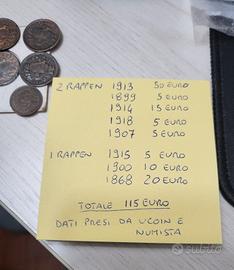 2 RAPPEN 1913 50 EURO
1899 5 EURO
1914 15 EURO
1918 5 EURO
1907 5 EURO
1 RAPPEN 1915 5 EURO
1900 10 EURO
1868 20 EURO
TOTALE 115 EURO
DATI PRESI DA UCOIN E
NUMISTA
subito